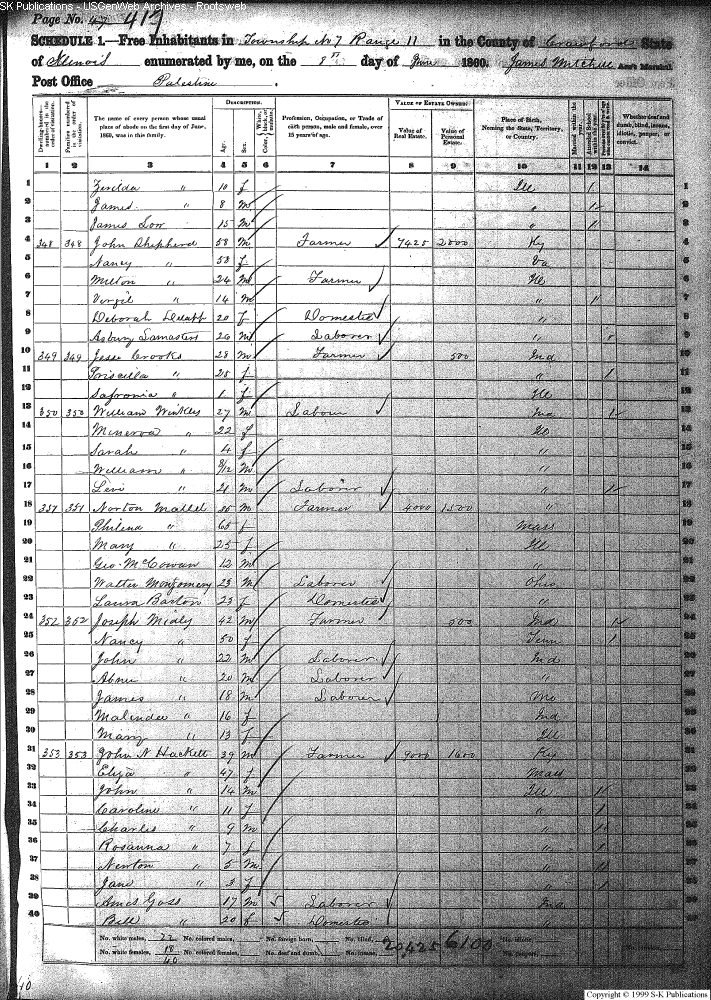 SK Publications - USGenWeb Archives - Rootsweb
Page No. 47 413
SCHEDULE 1.—Free Inhabitants in Township No 7 Range 11 in the County of Crawford State
of Illinois enumerated by me, on the 8th day of June 1860. James Mitchell Ass't Marshal.
Post Office Palestine.
DESCRIPTION. VALUE OF ESTATE OWNED.
Dwelling-houses—numbered in the order of visitation. Families numbered in the order of visitation. The name of every person whose usual place of abode on the first day of June, 1860, was in this family. Age. Sex. Color, White, black, or mulatto. Profession, Occupation, or Trade of each person, male and female, over 15 years of age. Value of Real Estate. Value of Personal Estate. Place of Birth, Naming the State, Territory, or Country. Married within the year. Whether deaf and dumb, blind, insane, idiotic, pauper, or convict.
1 2 3 4 5 6 7 8 9 10 11 12 13 14
1 Zerilda " 10 f Ill 1 1
2 James " 8 m " 1 2
3 James Low 15 m " 1 3
4 348 348 John Shepherd 58 m Farmer 7425 2000 Ky 4
5 Nancy " 58 f Va 5
6 Milton " 24 m Farmer Ill 6
7 Virgil " 14 m " 1 7
8 Deborah 20 f Domestic " 8
9 Asbury Lamasters 26 m Laborer " 9
10 349 349 Jesse Crooks 28 m Farmer 500 Ind 10
11 Priscilla " 28 f " 1 11
12 Safronia " 1 f Ill 12
13 350 350 William Winkles 27 m Labour Ind 1 13
14 Minerva " 22 f Ill 14
15 Sarah " 4 f " 15
16 William " 8/12 m " 16
17 Levi " 21 m Laborer " 1 17
18 351 351 Norton 35 m Farmer 4000 1500 " 18
19 Philena " 65 f Mass 19
20 Mary " 25 f Ill 20
21 Geo. McCowan 12 m " 21
22 Walter Montgomery 23 m Laborer Ohio 22
23 Laura Barton 23 f Domestic " 23
24 352 352 Joseph 42 m Farmer 500 Ind 1 24
25 Nancy " 50 f Tenn 1 25
26 John " 22 m Laborer Ind 26
27 Abner " 20 m Laborer " 27
28 James " 18 m Laborer Mo 28
29 Malinda " 16 f Ind 29
30 Mary " 13 f Ill 30
31 353 353 John N Hackett 39 m Farmer 9000 1600 Ky 31
32 Eliza " 47 f Mass 32
33 John " 14 m Ill 1 33
34 Caroline " 11 f " 1 34
35 Charles " 9 m " 1 35
36 Rosanna " 7 f " 1 36
37 Newton " 5 m " 1 37
38 Jane " 3 f " 1 38
39 Amos Goss 17 m Laborer Ind 39
40 Bell " 20 f Domestic " 40
No. white males, 22 No. colored males, No. foreign born, No. blind, 20,425 6100 No. idiotic,
No. white females, 18 No. colored females, No. deaf and dumb, No. insane, No. paupers,
40
Copyright © 1999 S-K Publications